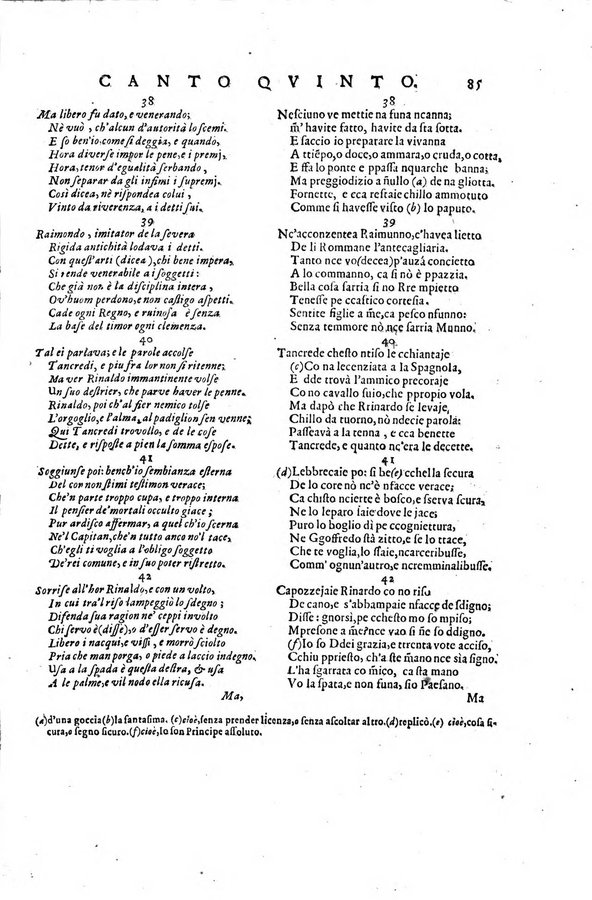 CANTO QVINTO. 85
38
Ma libero fu dato, e venerando;
Nè vuò, ch'alcun d'autorità lo scemi.
E so ben'io, come si deggia, e quando
Hora diverse impor le pene, e i premj,
Hora, tenor d'egualità serbando,
Non separar da gli infimi i supremj.
Così dicea, nè rispondea colui,
Vinto da riverenza, a i detti sui.
39
Raimondo, imitator de la severa
Rigida antichità lodava i detti.
Con quest'arti (dicea), chi bene impera,
Si rende venerabile a i soggetti:
Che già non è la disciplina intera,
Ov'huom perdono, e non castigo aspetti.
Cade ogni Regno, e ruinosa è senza
La base del timor ogni clemenza.
40
Tal ei parlava; e le parole accolse
Tancredi, e più fra lor non si ritenne;
Ma ver Rinaldo immantinente volse
Un suo destrier, che parve haver le penne.
Rinaldo, poi ch'al fier nemico tolse
L'orgoglio, e l'alma, al padiglion sen venne;
Qui Tancredi trovollo, e de le cose
Dette, e risposte a pien la somma espose.
41
Soggiunse poi: bench'io sembianza esterna
Del cor non stimi testimon verace;
Che'n parte troppo cupa, e troppo interna
Il pensier de'mortali occulto giace;
Pur ardisco affermar, a quel ch'io scerna
Ne'l Capitan, che'n tutto anco no'l tace,
Ch'egli ti voglia a l'obligo soggetto
De'rei comune, e in suo poter ristretto.
42
Sorrise all'hor Rinaldo, e con un volto,
In cui tra'l riso lampeggiò lo sdegno;
Difenda sua ragion ne' ceppi involto
Chi servo è (disse), o d'esser servo è degno.
Libero i nacqui, e vissi, e morrò sciolto
Pria che man porga, o piede a laccio indegno.
Usa a la spada è questa destra, & usa
A le palme, e vil nodo ella ricusa.
Ma,
38
Nesciuno ve mettie na funa ncanna;
m̃' havite fatto, havite da sta sotta.
E saccio io preparare la vivanna
A ttiẽpo, o doce, o ammara, o cruda, o cotta,
E ffa lo ponte e ppassà nquarche banna;
Ma preggiodizio a ñullo (a) de na gliotta.
Fornette, e cca restaje chillo ammotuto
Comme si havesse visto (b) lo paputo.
39
Ne'acconzentea Raimunno, e'havea lietto
De li Rommane l'antecagliaria.
Tanto nce vo (decea) p'auzà concietto
A lo commanno, ca si nò è ppazzia.
Bella cosa sarria si no Rre mpietto
Tenesse pe ccastico cortesia.
Sentite figlie a m̃e, ca pesco nsunno:
Senza temmore nò nce sarria Munno.
40
Tancrede chesto ntiso le cchiantaje
(c) Co na lecenziata a la Spagnola,
E dde trovà l'ammico precoraje
Co no cavallo sujo, che ppropio vola.
Ma dapò che Rrinardo se levaje,
Chillo da tuorno, nò ndecie parola:
Passeavà a la tenna, e cca benette
Tancrede, e quanto nc'era le decette.
41
(d) Lebbrecaie po: sì be (e) cchella secura
De lo core nò nc'è nfacce verace;
Ca chisto ncierte è bosco, e sserva scura,
Ne lo leparo saie dove le jace;
Puro lo boglio dì pe ccogniettura,
Ne Ggoffredo stà zitto, e se lo trace,
Che te voglia, lo ssaie, ncarceribusse,
Comm' ognun'autro, e ncremminalibusse.
42
Capozzejaie Rinardo co no riso
De cano, e s'abbampaie nfacce de sdigno;
Disse: gnorsì, pe cchesto mo so mpiso;
Mpresone a mẽ? nce vao si ñe so ddigno.
(f) Io so Ddei grazia, e ttrenta vote acciso,
Cchiu ppriesto, ch'a ste m̃ano nce sia signo.
L'ha sgarrata co m̃ico, ca sta mano
Vo la spata, e non funa, sio Paesano.
Ma
(a) d'una goccia (b) la fantasima. (c) cioè, senza prender licenza, o senza ascoltar altro. (d) replicò. (e) cioè, cosa si-
cura, o segno sicuro. (f) cioè, Io son Principe assoluto.